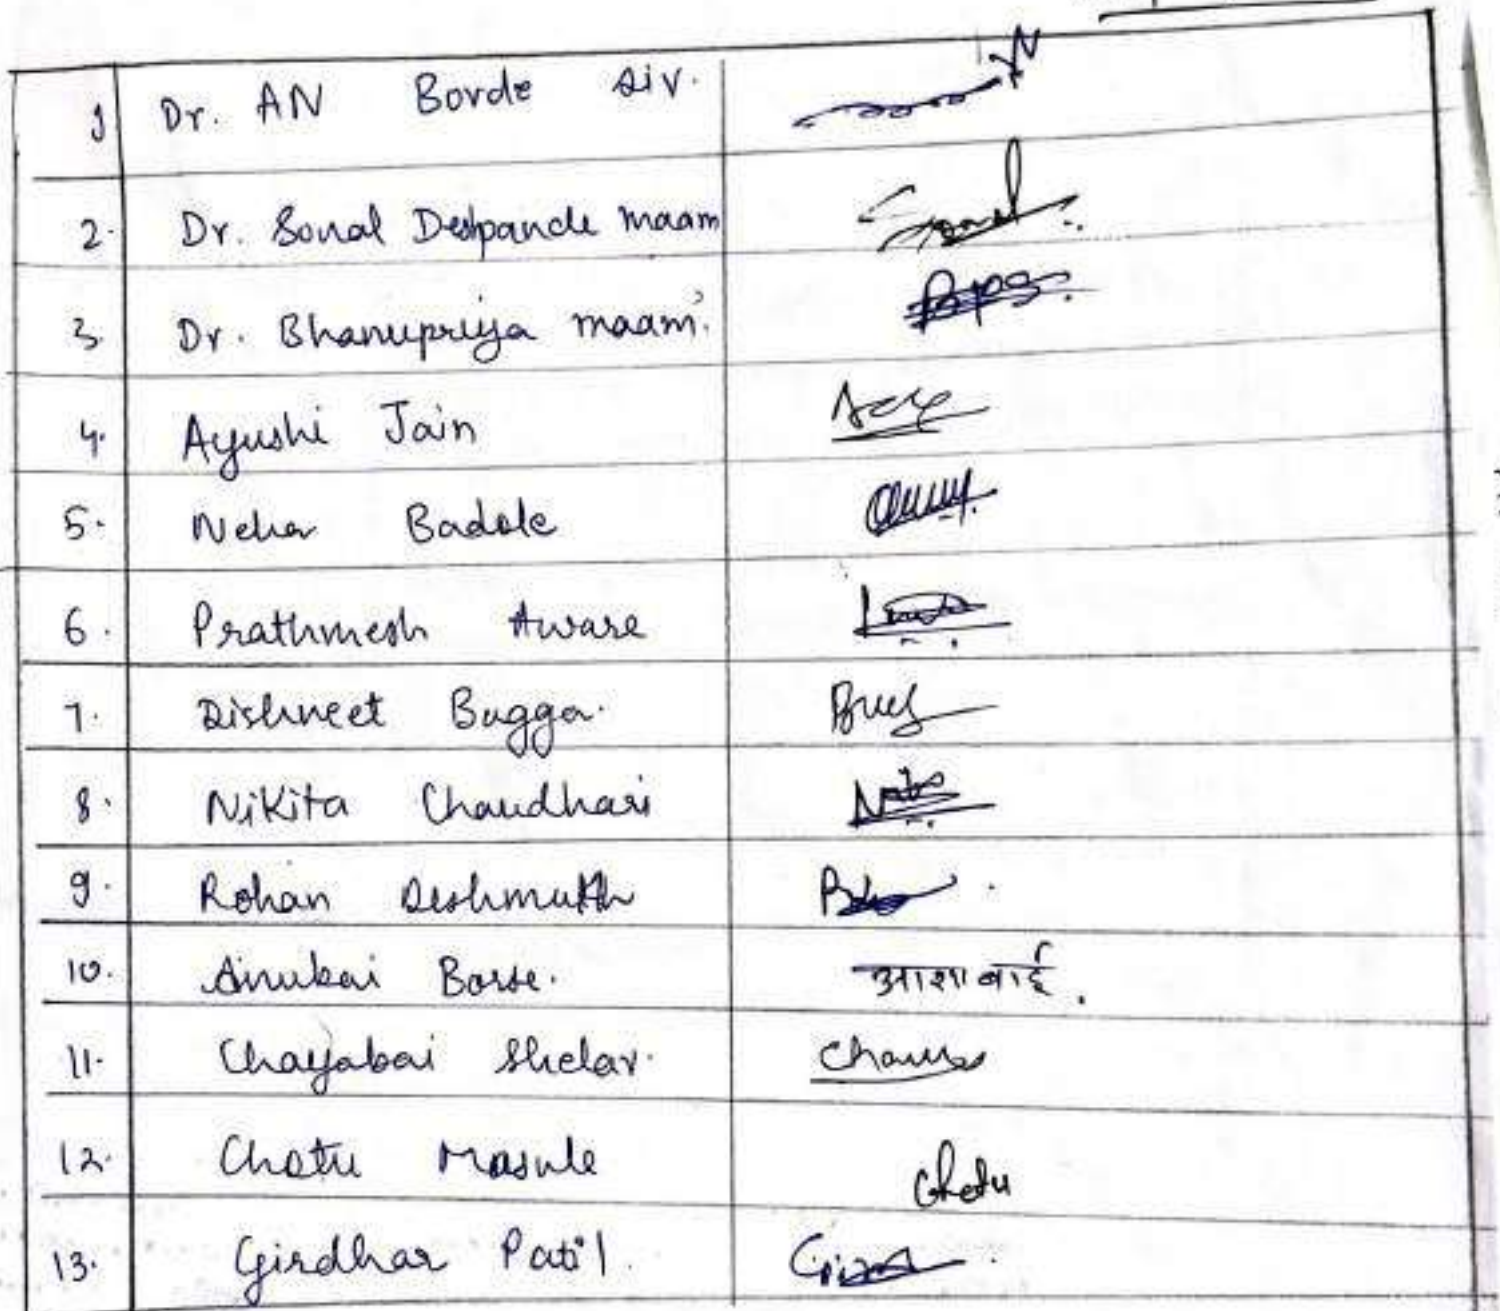 1 Dr. AN Borde Sir.
2. Dr. Sonal Deshpande maam Sonal
3. Dr. Bhanupriya maam.
4. Ayushi Jain
5. Neha Badole
6. Prathmesh Aware
7. Dishneet Bagga.
8. Nikita Chaudhari
9. Rohan Deshmukh
10. Anubai Borse. आशाबाई.
11. Chayabai Shelar.
12. Chotu Masule Chotu
13. Girdhar Patil.